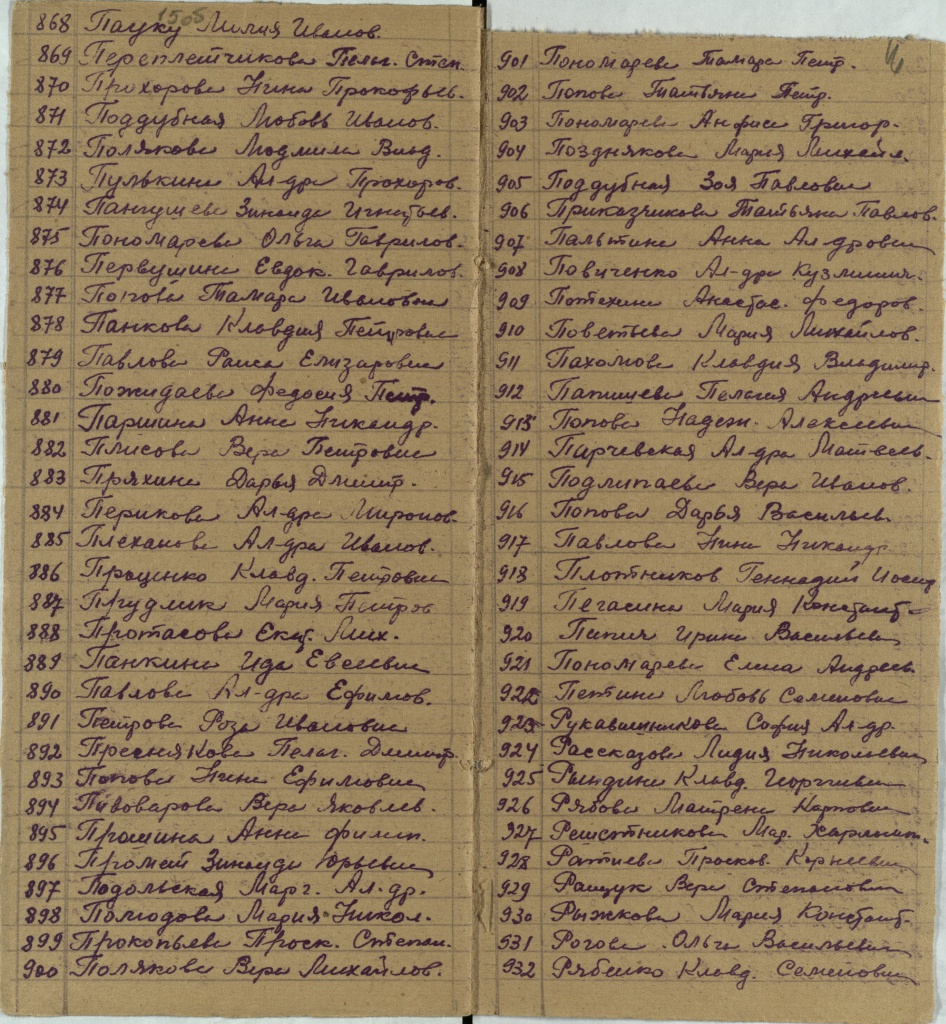 1505
868 Пауку Лилия Иванов.
869 Переплетчикова Пелаг. Степ.
870 Прохорова Нина Прокофьев.
871 Поддубная Любовь Иванов.
872 Полякова Людмила Влад.
873 Пулькина Ал-дра Прохоров.
874 Зинаида Игнатьев.
875 Пономарева Ольга Гаврилов.
876 Первушина Евдок. Гаврилов.
877 Попова Тамара Ивановна
878 Панкова Клавдия Петровна
879 Павлова Раиса Елизаровна
880 Пожидаева Федосия Петр.
881 Паршина Анна Никандр.
882 Плисова Вера Петровна
883 Пряхина Дарья Дмитр.
884 Перикова Ал-дра Миронов.
885 Плеханова Ал-дра Иванов.
886 Проценко Клавд. Петровна
887 Прудлик Мария Петров
888 Протасова Екат. Мих.
889 Панкина Ида Евсеевна
890 Павлова Ал-дра Ефимов.
891 Петрова Роза Ивановна
892 Преснякова Пелаг. Дмитр.
893 Попова Нина Ефимовна
894 Пивоварова Вера Яковлев.
895 Прошина Анна Филип.
896 Зинаида Юрьевна
897 Подольская Марг. Ал-др.
898 Полюдова Мария Никол.
899 Прокопьева Проск. Степан.
900 Полякова Вера Михайлов.
901 Пономарева Тамара Петр.
902 Попова Татьяна Петр.
903 Пономарева Анфиса Григор.
904 Позднякова Мария Михайл.
905 Поддубная Зоя Павловна
906 Приказчикова Татьяна Павлов.
907 Пальтина Анна Ал-дровна
908 Повиченко Ал-дра Кузминич.
909 Потехина Анастас. Федоров.
910 Поветьева Мария Михайлов.
911 Пахомова Клавдия Владимир.
912 Папишева Пелагия Андреевна
913 Попова Надеж. Алексеевна
914 Парчевская Ал-дра Матвеев.
915 Подлипаева Вера Иванов.
916 Попова Дарья Васильев.
917 Павлова Нина Никандр
918 Плотников Геннадий Иосиф
919 Пегасина Мария Констант-
920 Папич Ирина Васильевна
921 Пономарева Елена Андреев.
922 Петина Любовь Семеновна
923 Рукавишникова София Ал-др.
924 Рассказова Лидия Николаевна
925 Рындина Клавд. Георгиевна
926 Рябова Матрена Карповна
927 Решетникова Мар. Харламп.
928 Ратиева Просков. Корнеевна
929 Ращук Вера Степановна
930 Рыжкова Мария Констант-
931 Рогова Ольга Васильевна
932 Рябенко Клавд. Семеновна